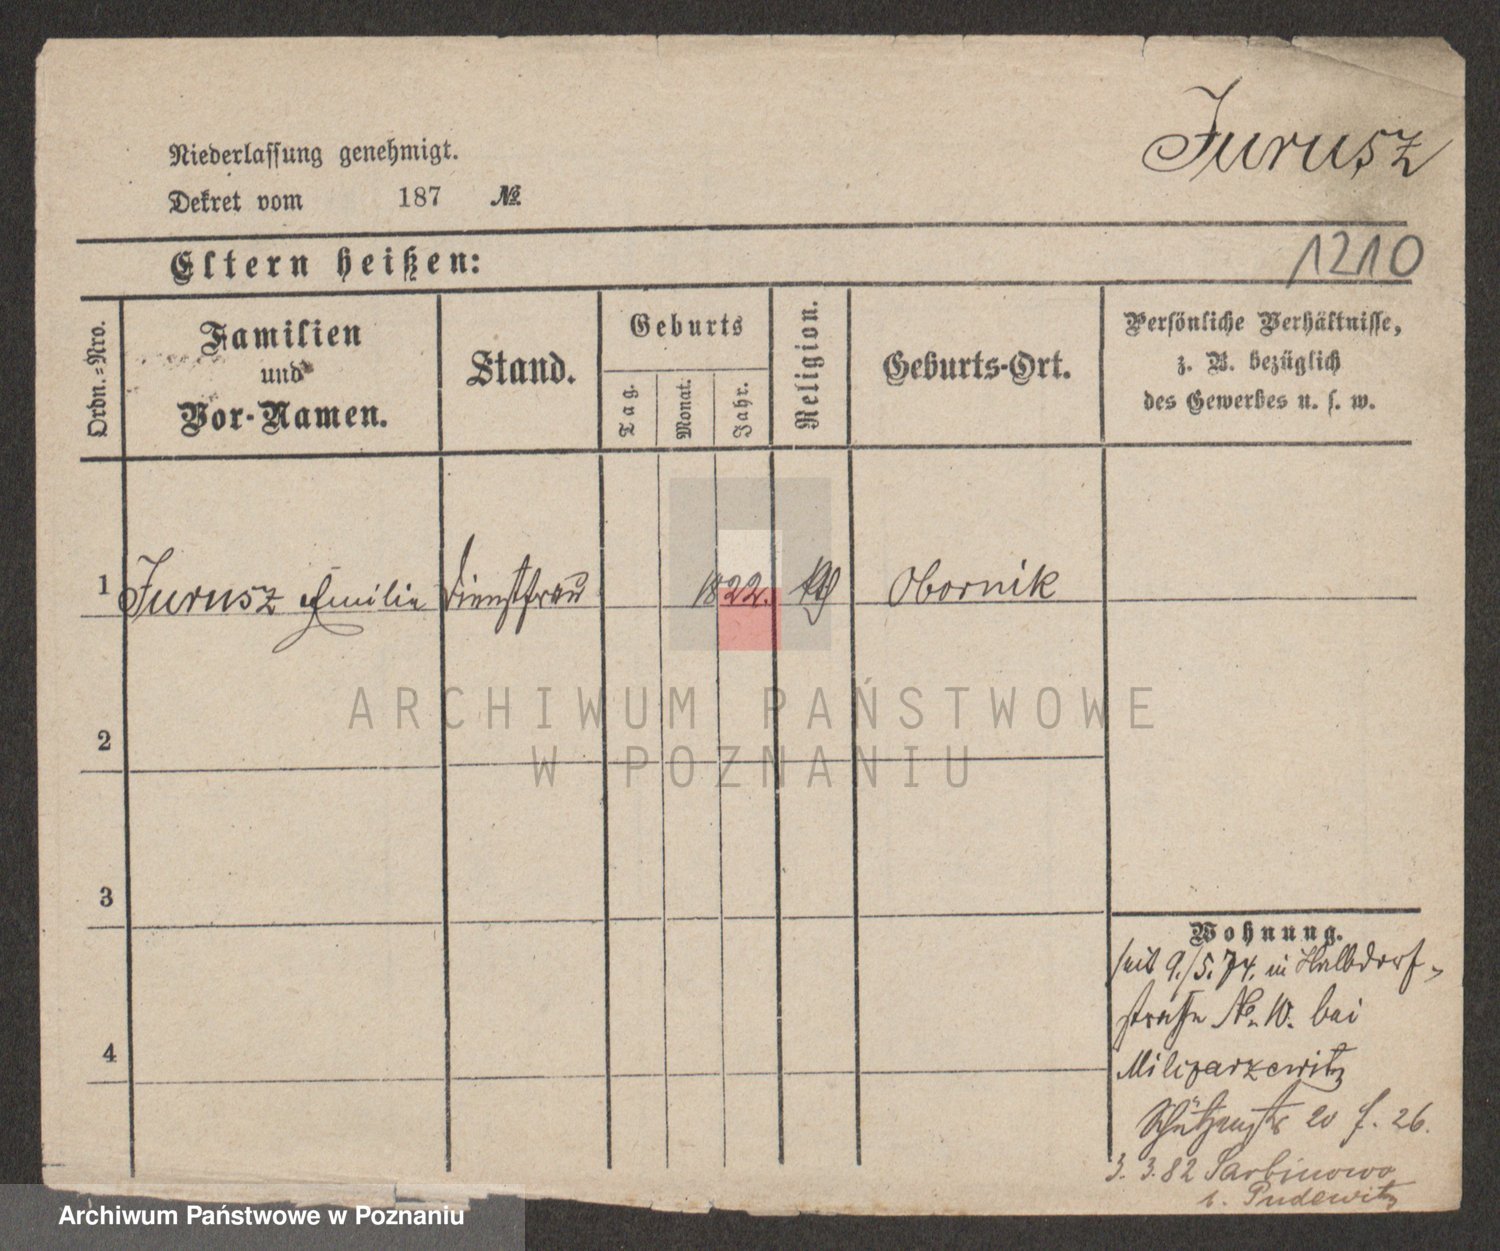 Jurusz
Niederlassung genehmigt.
Dekret vom 187 №
1210
Eltern heißen:
Ordn.-Nro.
Familien
und
Vor-Namen.
Stand.
Geburts
Tag.
Monat.
Jahr.
Religion.
Geburts-Ort.
Persönliche Verhältnisse,
z. B. bezüglich
des Gewerbes u. s. w.
1 Jurusz Emilie Dienstfrau 1822. Obornik
2
3
4
Wohnung.
seit 9./5.74. in Halbdorf-
straße No. 10. bei
Schützenstr 20 26.
3. 3. 82 Sarbinowo
Pudewitz
ARCHIWUM PAŃSTWOWE
W POZNANIU
Archiwum Państwowe w Poznaniu